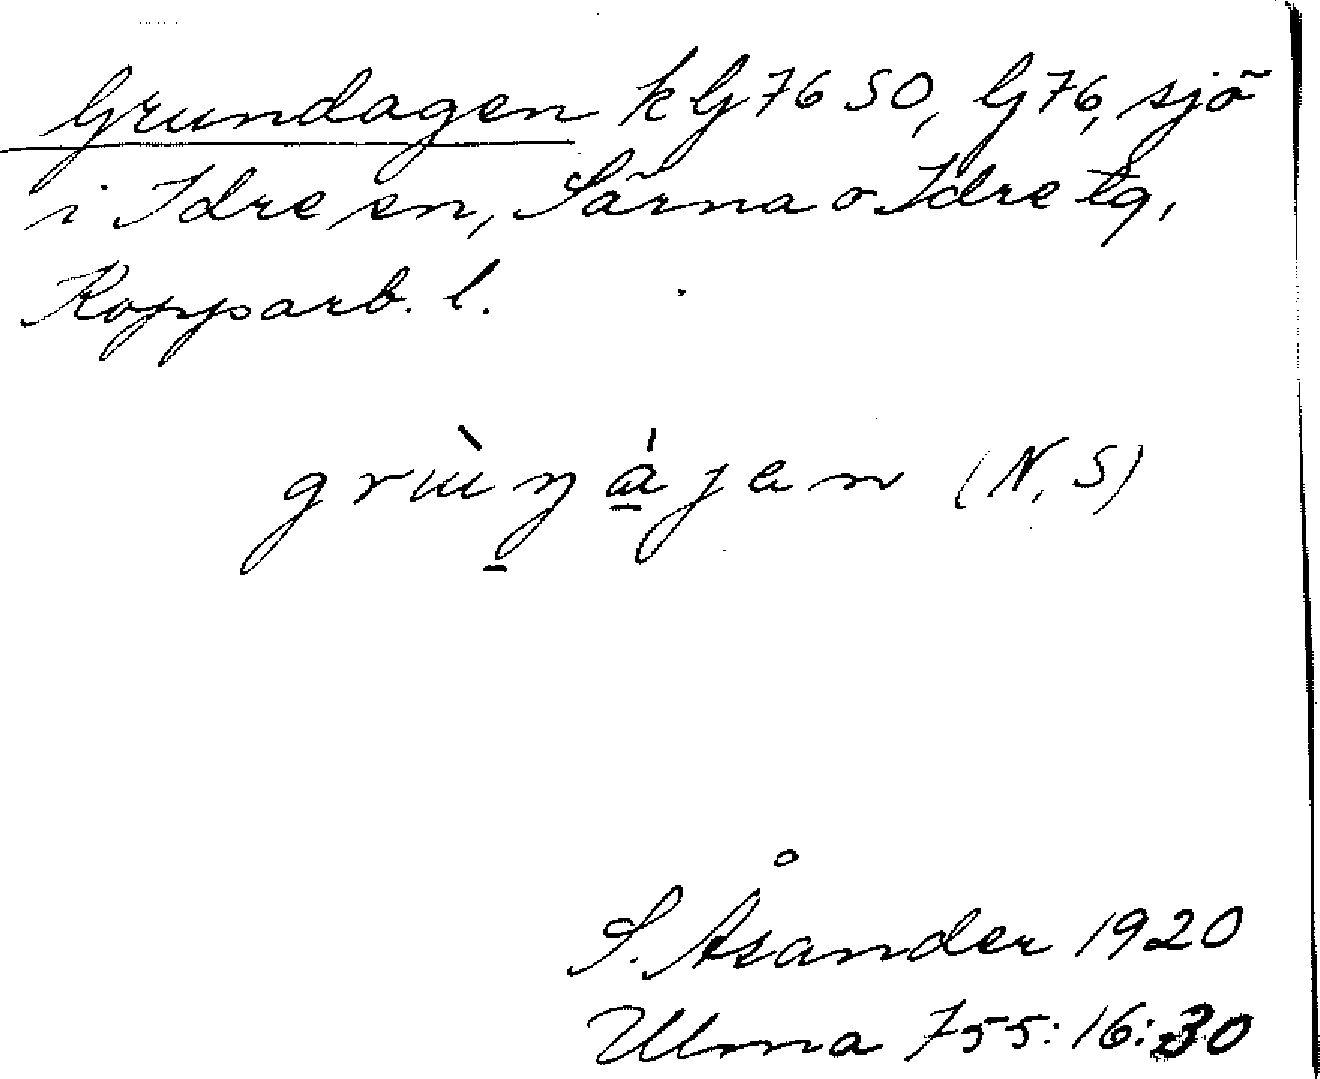 Grundagen k G 76 SO, G 76, sjö
i Idre sn, Särna o Idre tg,
Kopparb. l.
(N, S)
S. Åsander 1920
Ulma 755:16:30